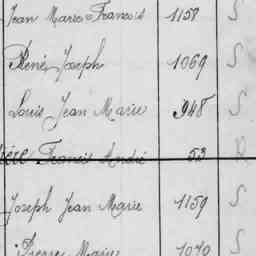 Jean Marie François 1158 S
René Joseph 1069 S
Louis Jean Marie 948 S
Francis André 53
Joseph Jean Marie 1159 S
Pierre Marie 1070 S